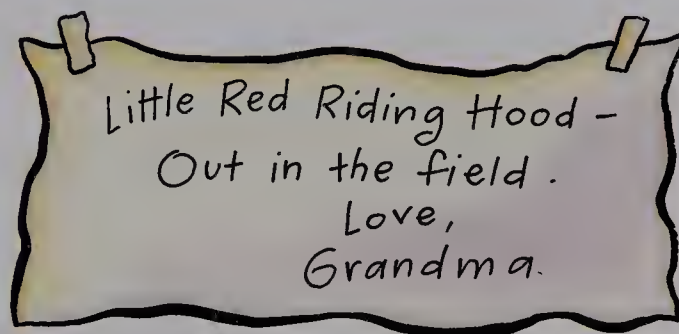 Little Red Riding Hood -
Out in the field.
Love,
Grandma.